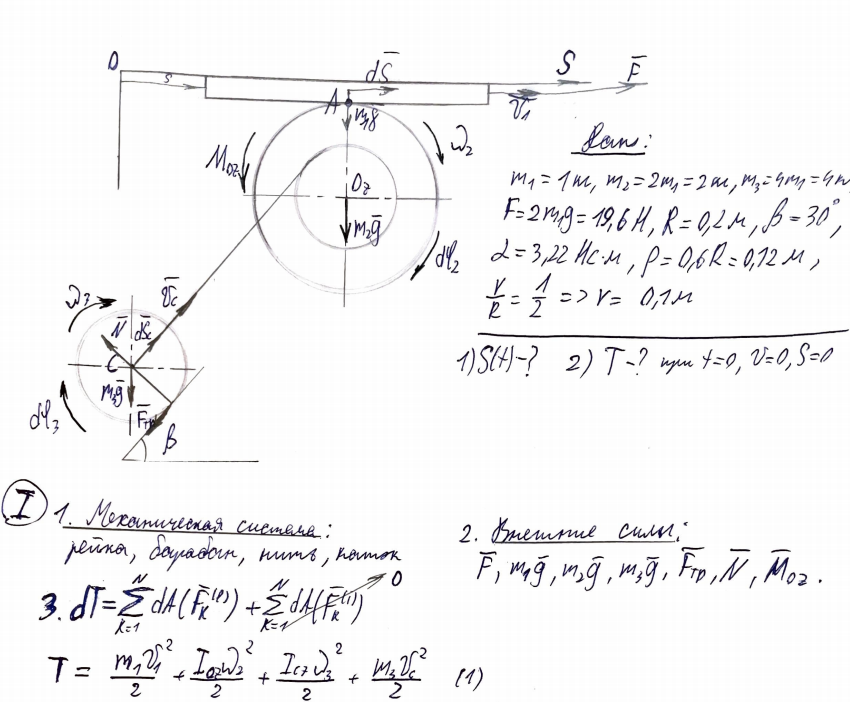 O
S
dS̄
S
F̄
A
m₁ḡ
V̄₁
M_oz
ω₂
O_z
m₂ḡ
dφ₂
ω₃
V̄c
N̄
dS̄c
C
m₃ḡ
F̄тр
dφ₃
β
Дано:
m₁ = 1 кг, m₂ = 2m₁ = 2 кг, m₃ = 4m₁ = 4 кг
F = 2m₁g = 19,6 Н, R = 0,2 м, β = 30°,
α = 3,22 Нс·м, ρ = 0,6R = 0,12 м,
r/R = 1/2 => r = 0,1 м
1) S(t) - ? 2) T - ? при t=0, V=0, S=0
I
1. Механическая система:
рейка, барабан, нить, каток
2. Внешние силы:
F̄, m₁ḡ, m₂ḡ, m₃ḡ, F̄тр, N̄, M̄_oz.
3. dT = Σ_{K=1}^{N} dA(F̄_K^{(e)}) + Σ_{K=1}^{N} dA(F̄_K^{(i)}) 0
T = m₁V₁²/2 + I_oz ω₂²/2 + I_cz ω₃²/2 + m₃Vc²/2 (1)